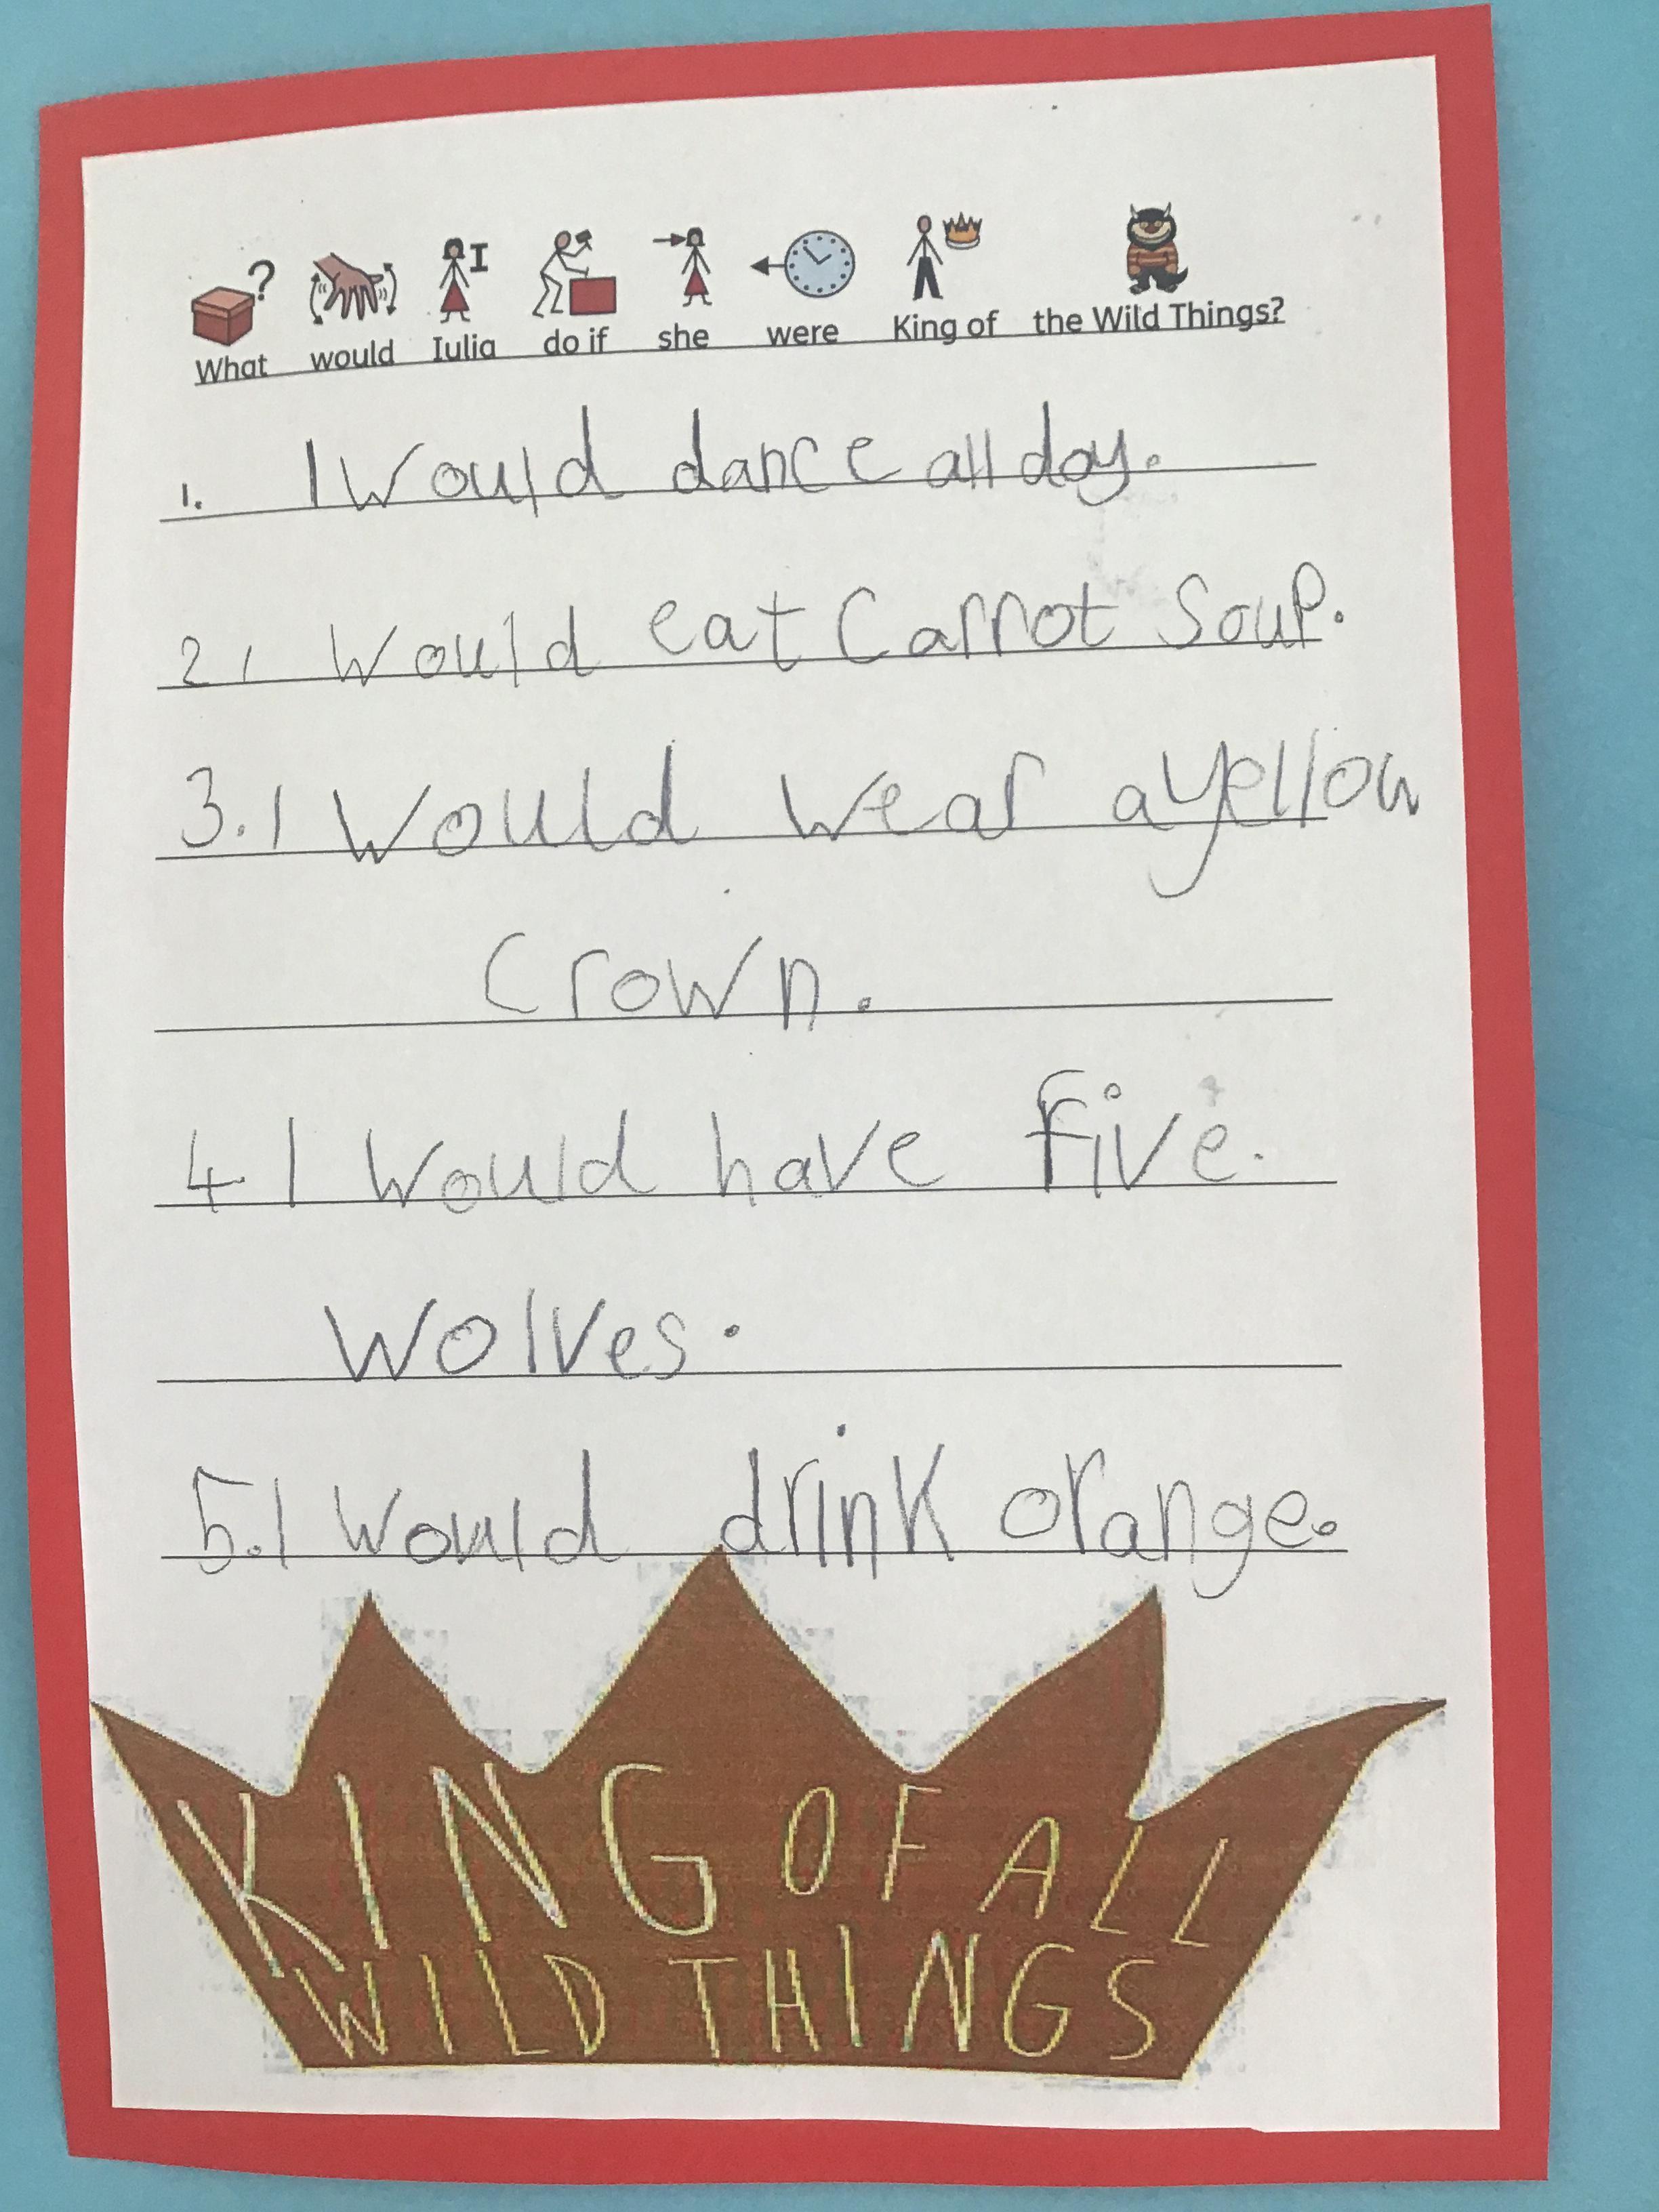 What would Iulia do if she were King of the Wild Things?
1. I would dance all day.
2 I would eat Carrot Soup.
3. I would wear a yellow
Crown.
4 I would have five.
Wolves.
5. I would drink orange.
KING OF ALL
WILD THINGS